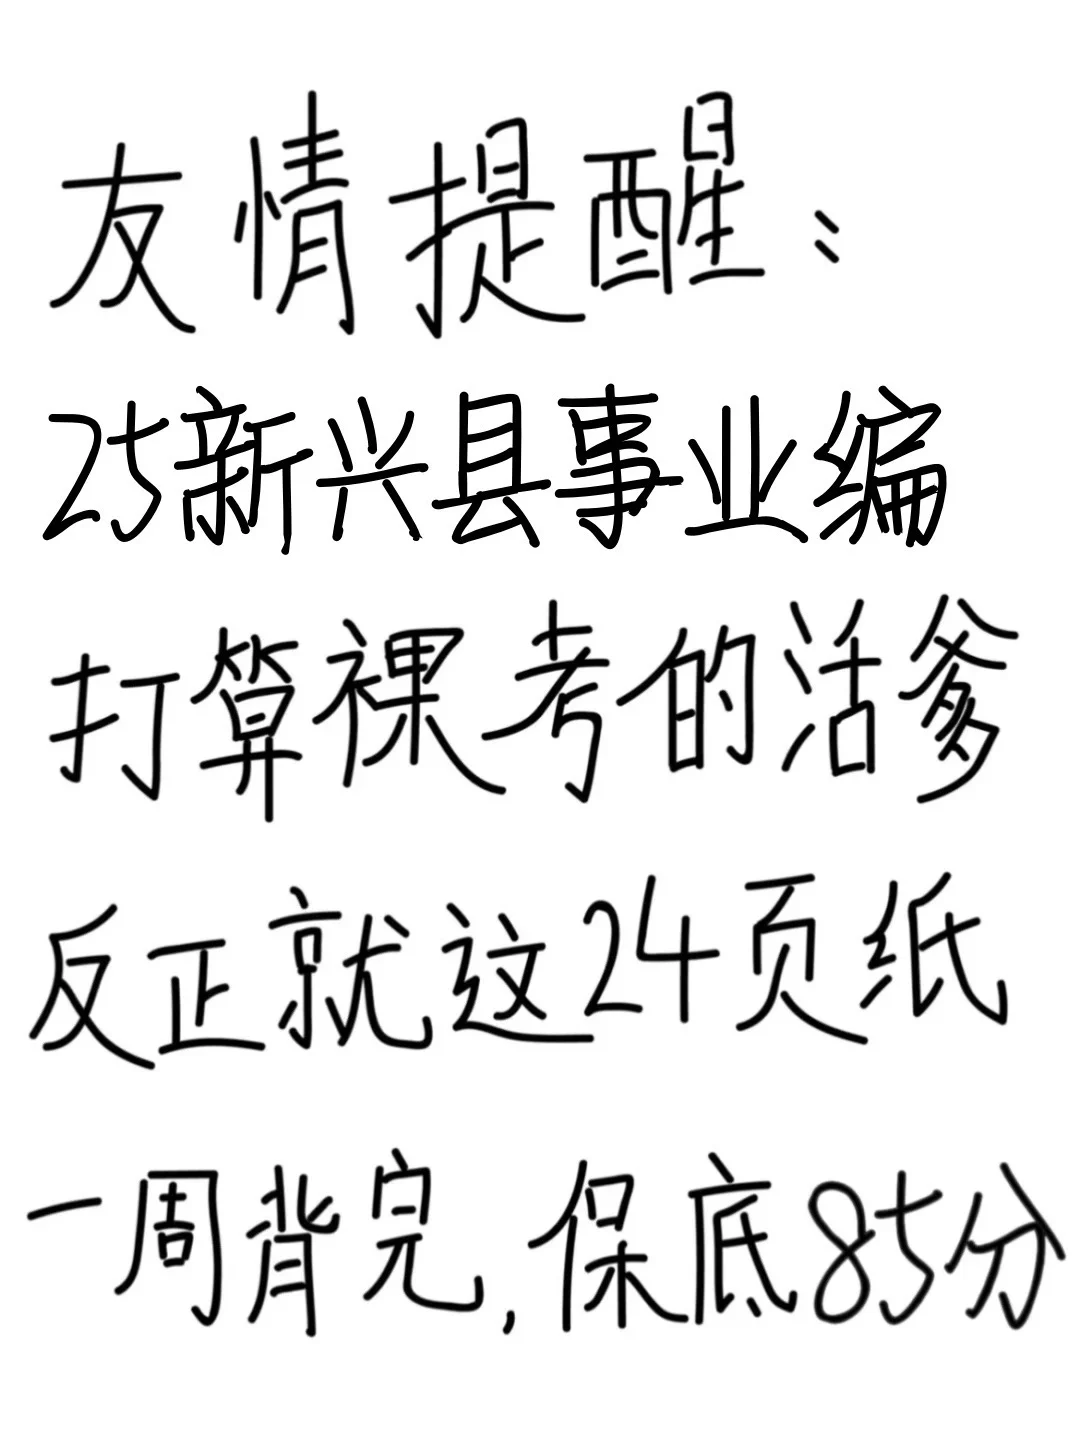 友情提醒：
25新兴县事业编
打算裸考的活爹
反正就这24页纸
一周背完，保底85分